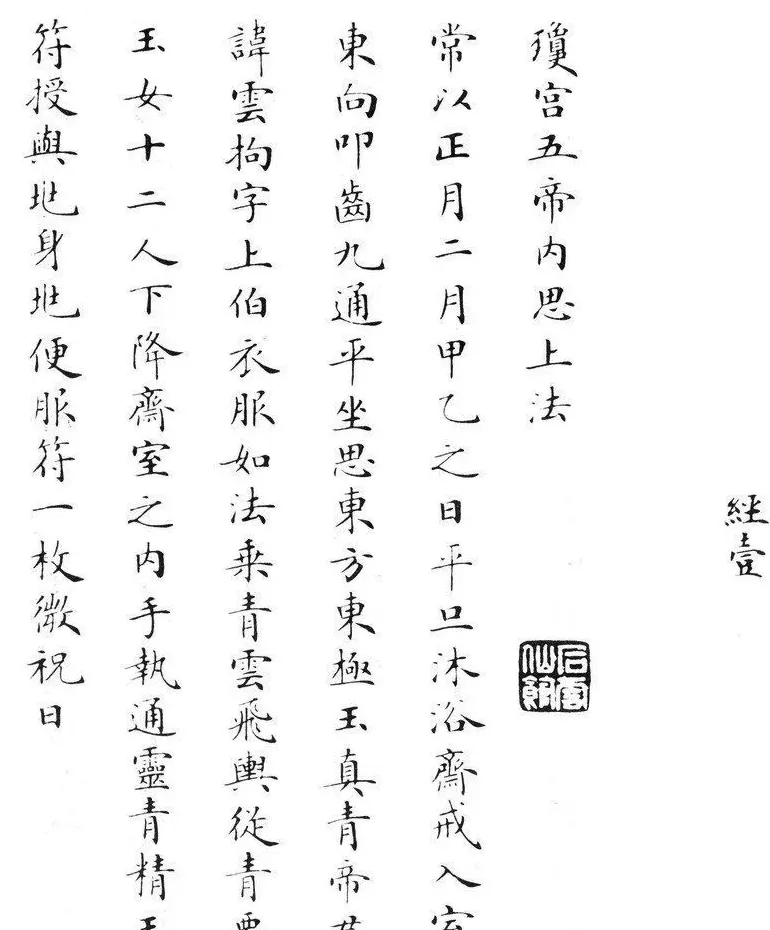 經壹
瓊宫五帝内思上法
常以正月二月甲乙之日平旦沐浴齋戒入室
東向叩齒九通平坐思東方東極玉真青帝
諱雲拘字上伯衣服如法乗青雲飛輿從青要
玉女十二人下降齋室之内手執通靈青精
符授與兆身兆便服符一枚微祝曰